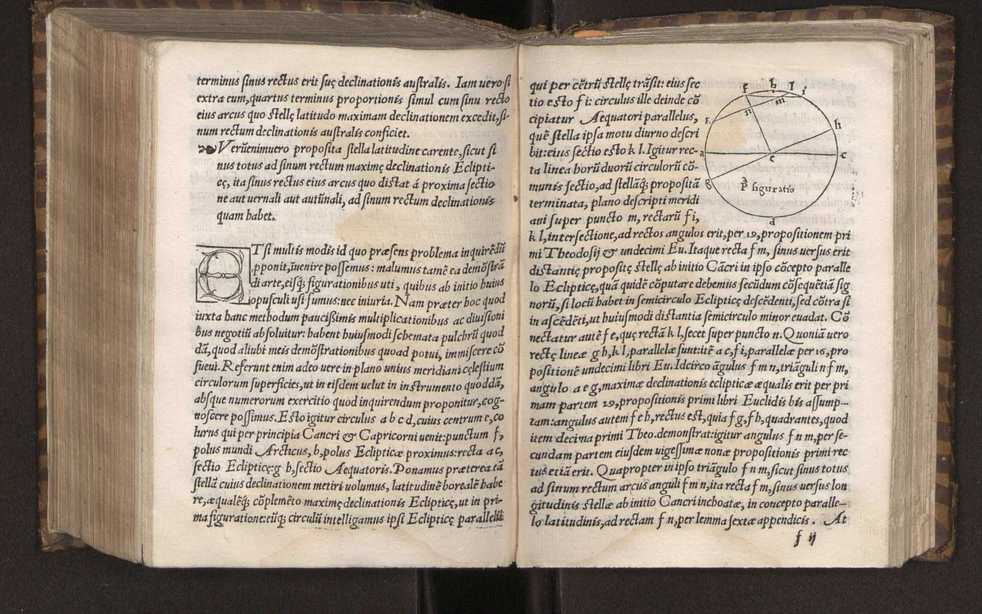 terminus sinus rectus erit suę declinationis australis. Iam uero si
extra eum, quartus terminus proportionis simul cum sinu recto
eius arcus quo stellę latitudo maximam declinationem excedit, si-
num rectum declinationis australis conficiet.
Verũenimuero proposita stella latitudine carente, sicut si
nus totus ad sinum rectum maximę declinationis Eclipti-
cę, ita sinus rectus eius arcus quo distat á proxima sectio
ne aut uernali aut autũnali, ad sinum rectum declinationis
quam habet.
ETsi multis modis id quo præsens problema inquirẽdũ
apponit, ĩuenire possemus: malumus tamẽ ea demõstrã
di arte, eisq; figurationibus uti, quibus ab initio huius
opusculi usi sumus: nec iniuria. Nam præter hoc quod
iuxta hanc methodum paucißimis multiplicationibus ac diuisioni
bus negotiũ absoluitur: habent huiusmodi schemata pulchrũ quod
dã, quod aliubi meis demõstrationibus quoad potui, immiscere cõ
sueui. Referunt enim adeo uere in plano unius meridiani cęlestium
circulorum superficies, ut in eisdem uelut in instrumento quoddã,
absque numerorum exercitio quod inquirendum proponitur, cog-
noscere possimus. Esto igitur circulus a b c d, cuius centrum e, co
lurus qui per principia Cancri & Capricorni uenit: punctum f,
polus mundi Arcticus, h, polus Eclipticæ proximus: recta a c,
sectio Eclipticę: g h, sectio Aequatoris. Ponamus præterea eã
stellã cuius declinationem metiri volumus, latitudinẽ borealẽ habe
re, æqualẽq; cõplemẽto maximę declinationis Eclipticę, ut in pri-
ma figuratione: eũq; circulũ intelligamus ipsi Eclipticę parallelũ
qui per cẽtrũ stellę trãsit: eius sec
tio esto f i: circulus ille deinde cõ
cipiatur Aequatori parallelus,
quẽ stella ipsa motu diurno descri
bit: eius sectio esto k l. Igitur rec-
ta linea horũ duorũ circulorũ cõ-
munis sectio, ad stellãq; propositã
terminata, plano descripti meridi
ani super puncto m, rectarũ f i,
k l, intersectione, ad rectos angulos erit, per 19, propositionem pri
mi Theodosij & undecimi Eu. Itaque recta f m, sinus uersus erit
distantię propositę stellę ab initio Cãcri in ipso cõcepto paralle
lo Eclipticę, quã quidẽ cõputare debemus secũdum cõsequẽtiã sig
norũ, si locũ habet in semicirculo Eclipticę descẽdenti, sed cõtra si
in ascẽdẽti, ut huiusmodi distantia semicirculo minor euadat. Cõ
nectatur autẽ f e, quę rectã k l, secet super puncto n. Quoniã uero
rectę lineæ g h, k l, parallelæ sunt: itẽ a c, f i, parallelæ per 16, pro
positionẽ undecimi libri Eu. Idcirco ãgulus f m n, triãguli n f m,
angulo a e g, maximæ declinationis eclipticæ æqualis erit per pri
mam partem 29, propositionis primi libri Euclidis bis assump-
tam: angulus autem f e h, rectus est, quia f g, f h, quadrantes, quod
item decima primi Theo. demonstrat: igitur angulus f n m, per se-
cundam partem eiusdem uigessimæ nonæ propositionis primi rec
tus etiã erit. Quapropter in ipso triãgulo f n m, sicut sinus totus
ad sinum rectum arcus anguli f m n, ita recta f m, sinus uersus lon
gitudinis stellæ ab initio Cancri inchoatæ, in concepto paralle-
lo latitudinis, ad rectam f n, per lemma sextæ appendicis. At
f ij
f b l i
m
n
a e c
h
g
p̃ figuratio
d